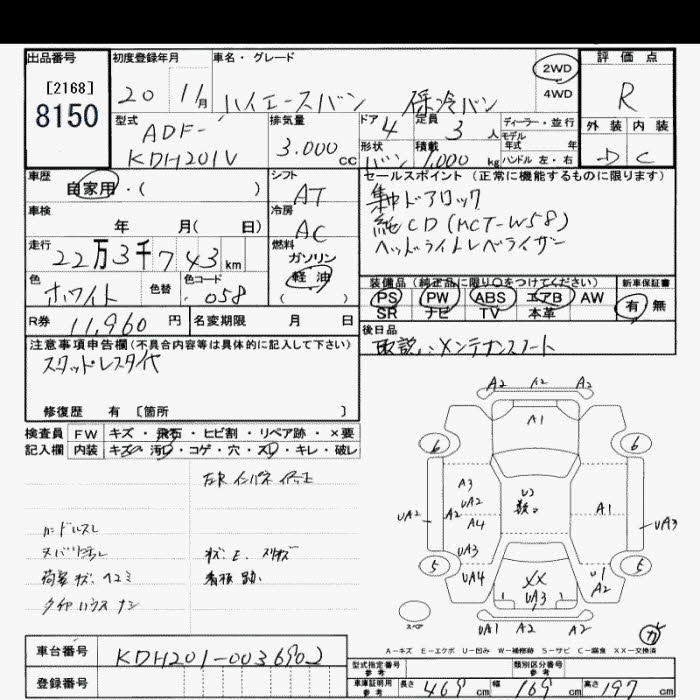 出品番号
[2168]
8150
初度登録年月
20 11月
車名・グレード
ハイエースバン 保冷バン
2WD
4WD
評価点
R
外装 内装
D C
型式
ADF-
KDH201V
排気量
3.000cc
ドア
4
定員
3人
ディーラー・並行
モデル
年式 年
ハンドル 左・右
形状
バン
積載
1,000kg
車歴
自家用・( )
車検
年 月( 日)
走行
22万3千743km
色
ホワイト
色替
色コード
058
シフト
AT
冷房
AC
燃料
ガソリン
軽油
( )
R券 11,960円
名変期限 月 日
セールスポイント(正常に機能するものに限ります)
集中ドアロック
純CD(MCT-W58)
ヘッドライトレベライザー
装備品(純正品に限り○をつけてください)
PS PW ABS エアB AW
SR ナビ TV 本革
新車保証書
有 無
後日品
取説 メンテナンスノート
注意事項申告欄(不具合内容等は具体的に記入して下さい)
スタッドレスタイヤ
修復歴 有 [箇所 ]
検査員
記入欄
FW キズ・飛石・ヒビ割・リペア跡・×要
内装 キズ・汚・コゲ・穴・スレ・キレ・破レ
左Rインパネ
ハンドルスレ
荷室キズ ヘコミ
看板跡
A2 A2 A2
A1
6 6
A3
UA2
A2
A4
UA3
UA4
UA2
U2
A1
UA3
5 5
XX
UA3
U1
A2
UA1 A2 A2
スペア
カ
A-キズ E-エクボ U-凹み W-補修跡 S-サビ C-腐食 XX-交換済
車台番号
KDH201-0036902
登録番号
型式指定番号
参考
類別区分番号
参考
車庫証明用
参考
長さ 469cm 幅 169cm 高さ 197cm